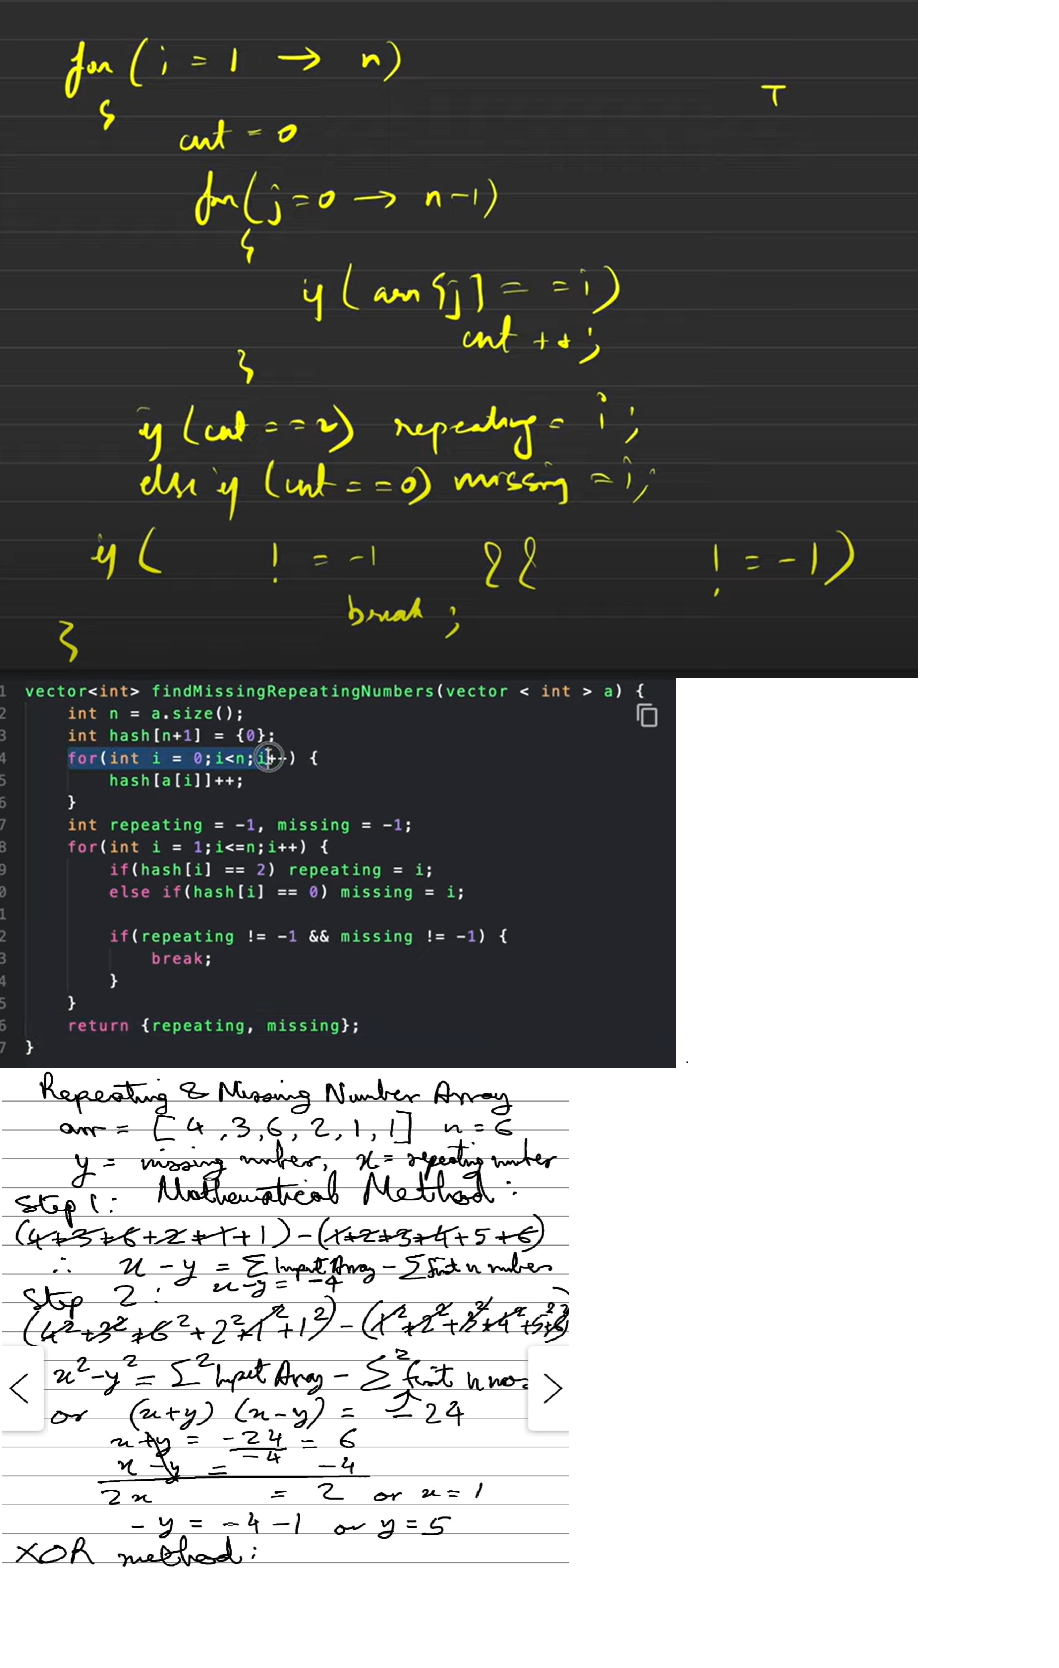 for (i = 1 → n)
{
T
cnt = 0
for (j = 0 → n-1)
{
if (arr[j] == i)
cnt ++;
}
if (cnt == 2) repeating = i;
else if (cnt == 0) missing = i;
if ( != -1 && != -1)
break;
}
1 vector<int> findMissingRepeatingNumbers(vector < int > a) {
2 int n = a.size();
3 int hash[n+1] = {0};
4 for(int i = 0;i<n;i++) {
5 hash[a[i]]++;
6 }
7 int repeating = -1, missing = -1;
8 for(int i = 1;i<=n;i++) {
9 if(hash[i] == 2) repeating = i;
0 else if(hash[i] == 0) missing = i;
1
2 if(repeating != -1 && missing != -1) {
3 break;
4 }
5 }
6 return {repeating, missing};
7 }
Repeating & Missing Number Array
arr = [4, 3, 6, 2, 1, 1] n = 6
y = missing number, x = repeating number
Step 1: Mathematical Method:
(4+3+6+2+1+1) - (1+2+3+4+5+6)
∴ x - y = Σ Input Array - Σ first n number
x - y = -4
Step 2:
(4²+3²+6²+2²+1²+1²) - (1²+2²+3²+4²+5²+6²)
x² - y² = Σ² Input Array - Σ² first n nos
or (x+y) (x-y) = -24
x + y = -24/-4 = 6
x - y = -4
2x = 2 or x = 1
-y = -4 -1 or y = 5
XOR method: